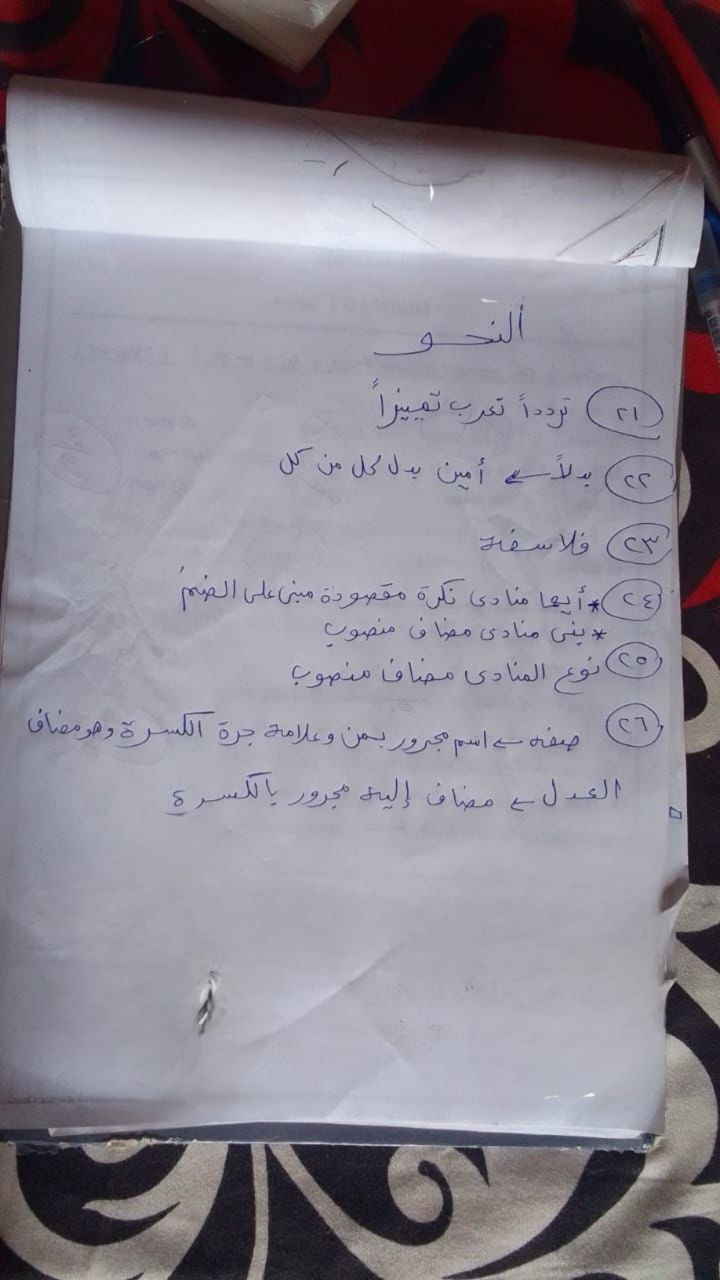 النحو
٢١ تردداً تعرب تمييزاً
٢٢ بدلاً ← أمين بدل كل من كل
٢٣ فلاسفه
٢٤ * أيها منادى نكرة مقصودة مبنى على الضم
* بنى منادى مضاف منصوب
٢٥ نوع المنادى مضاف منصوب
٢٦ صفه ← اسم مجرور بمن وعلامه جرة الكسرة وهو مضاف
العدل ← مضاف إليه مجرور بالكسرة